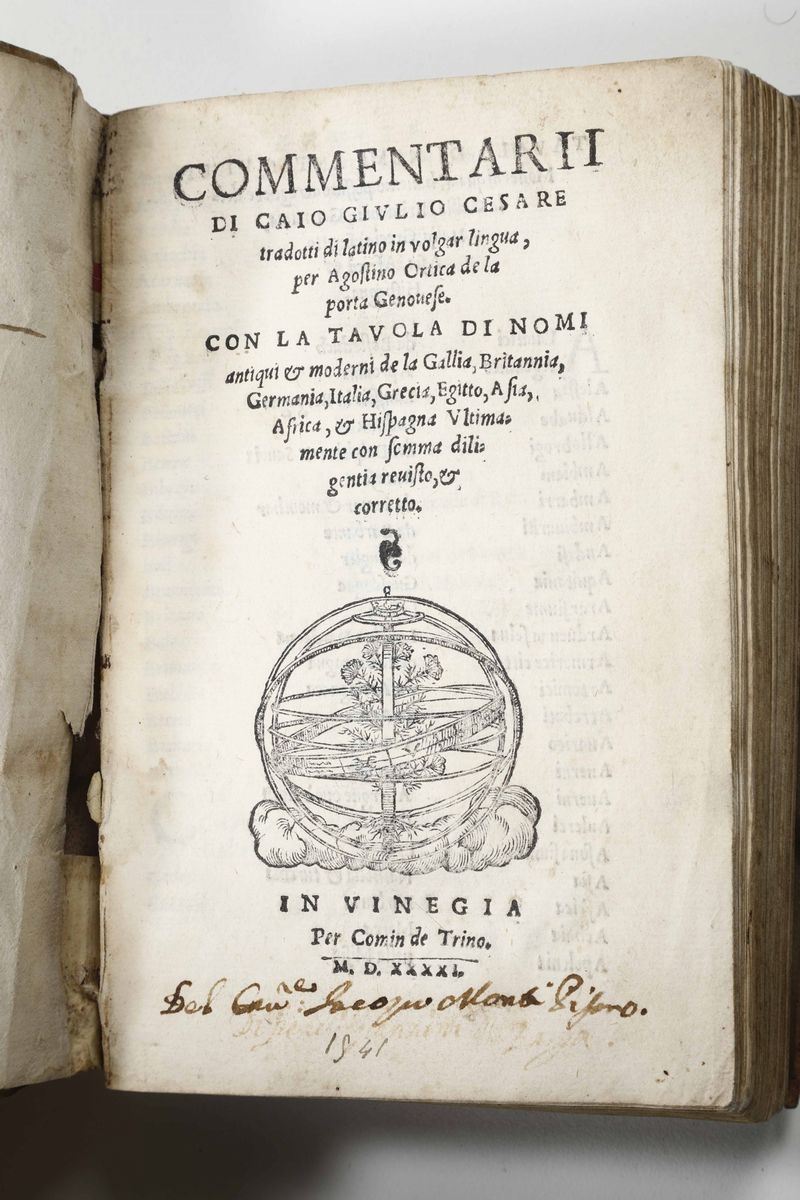 COMMENTARII
DI CAIO GIVLIO CESARE
tradotti di latino in volgar lingua,
per Agoſtino Ortica de la
porta Genoueſe.
CON LA TAVOLA DI NOMI
antiqui & moderni de la Gallia, Britannia,
Germania, Italia, Grecia, Egitto, Aſia,
Africa, & Hiſpagna Vltima-
mente con ſomma dili-
gentia reuiſto, &
corretto.
IN VINEGIA
Per Comin de Trino.
M. D. XXXXI.
Del Jacopo Monti
1541